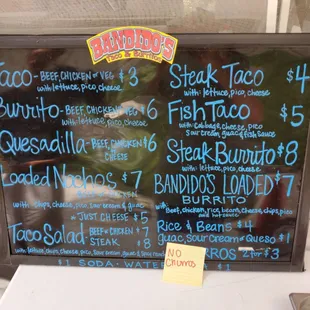 BANDIDO'S
Taco & Burritos
Taco - BEEF, CHICKEN or VEG $3
with lettuce, pico, cheese
Burrito - BEEF, CHICKEN or VEG $6
with lettuce, pico, cheese
Quesadilla - BEEF, CHICKEN $6
CHEESE
Loaded Nachos $7
with chips, cheese, pico, sour cream & guac
JUST CHEESE $5
Taco Salad BEEF or CHICKEN $7
STEAK $8
with lettuce, chips, cheese, pico, sour cream, guac
$1 SODA - WATER $1
Steak Taco $4
with lettuce, pico, cheese
Fish Taco $5
with cabbage, cheese, pico
sour cream, guac, fish sauce
Steak Burrito $8
with lettuce, pico, cheese
BANDIDOS LOADED $7
BURRITO
Beef, chicken, rice, beans, cheese, chips, pico
and hot sauce
Rice & Beans $4
guac, sour cream or Queso $1
2 for $3
NO
CHURROS